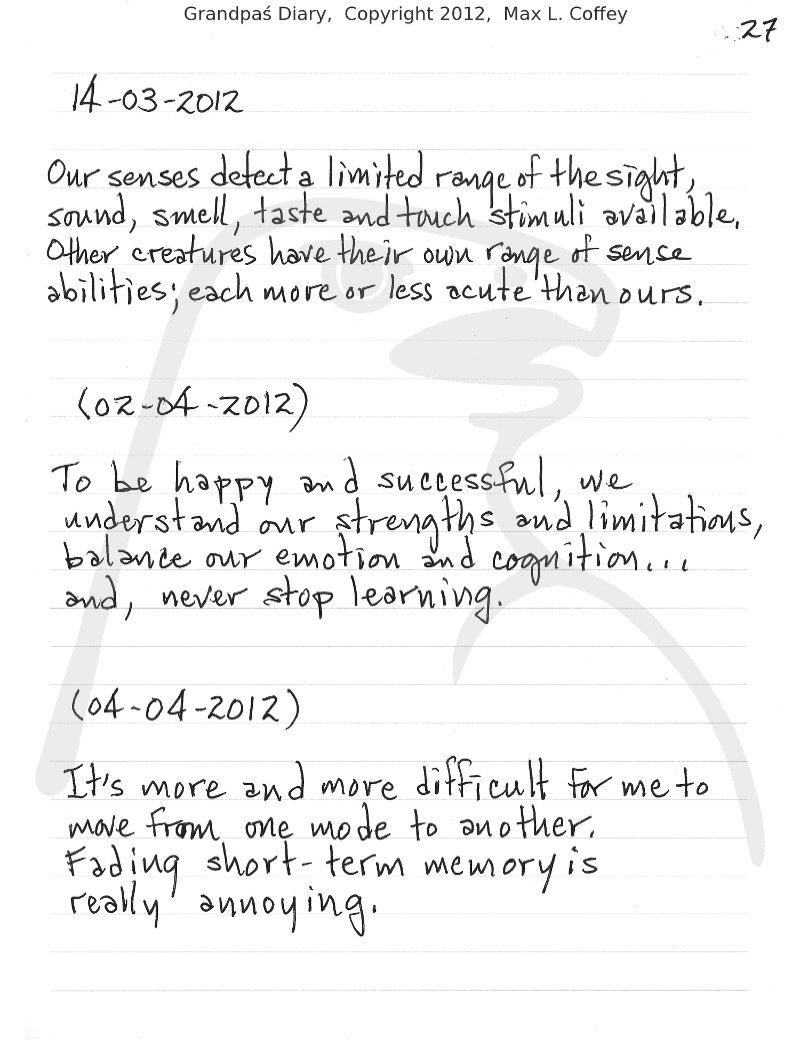 Grandpaś Diary, Copyright 2012, Max L. Coffey
27
14-03-2012
Our senses detect a limited range of the sight,
sound, smell, taste and touch stimuli available.
Other creatures have their own range of sense
abilities; each more or less acute than ours.
(02-04-2012)
To be happy and successful, we
understand our strengths and limitations,
balance our emotion and cognition...
and, never stop learning.
(04-04-2012)
It's more and more difficult for me to
move from one mode to another.
Fading short-term memory is
really annoying.